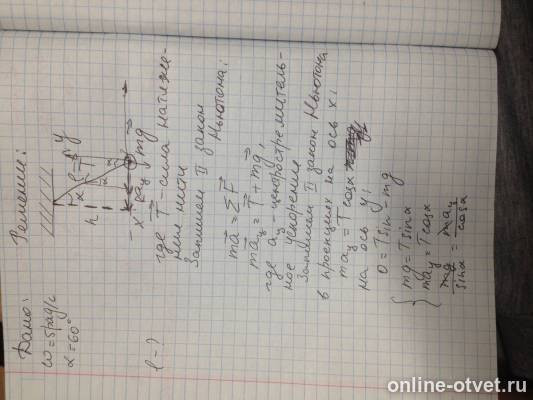 Дано:
ω=5рад/с
α=60°
l-?
Решение:
y
l
T
α
h
α
-x
aц
mg
где T - сила натяже-
ния нити
Запишем II закон
Ньютона:
ma=ΣF
maц=T+mg,
где aц - центростремитель-
ное ускорение
Запишем II закон Ньютона
в проекциях на ось x:
maц=Tcosα
на ось y:
0=Tsin-mg
{ mg=Tsinα
maц=Tcosα
mg/sinα = maц/cosα
online-otvet.ru